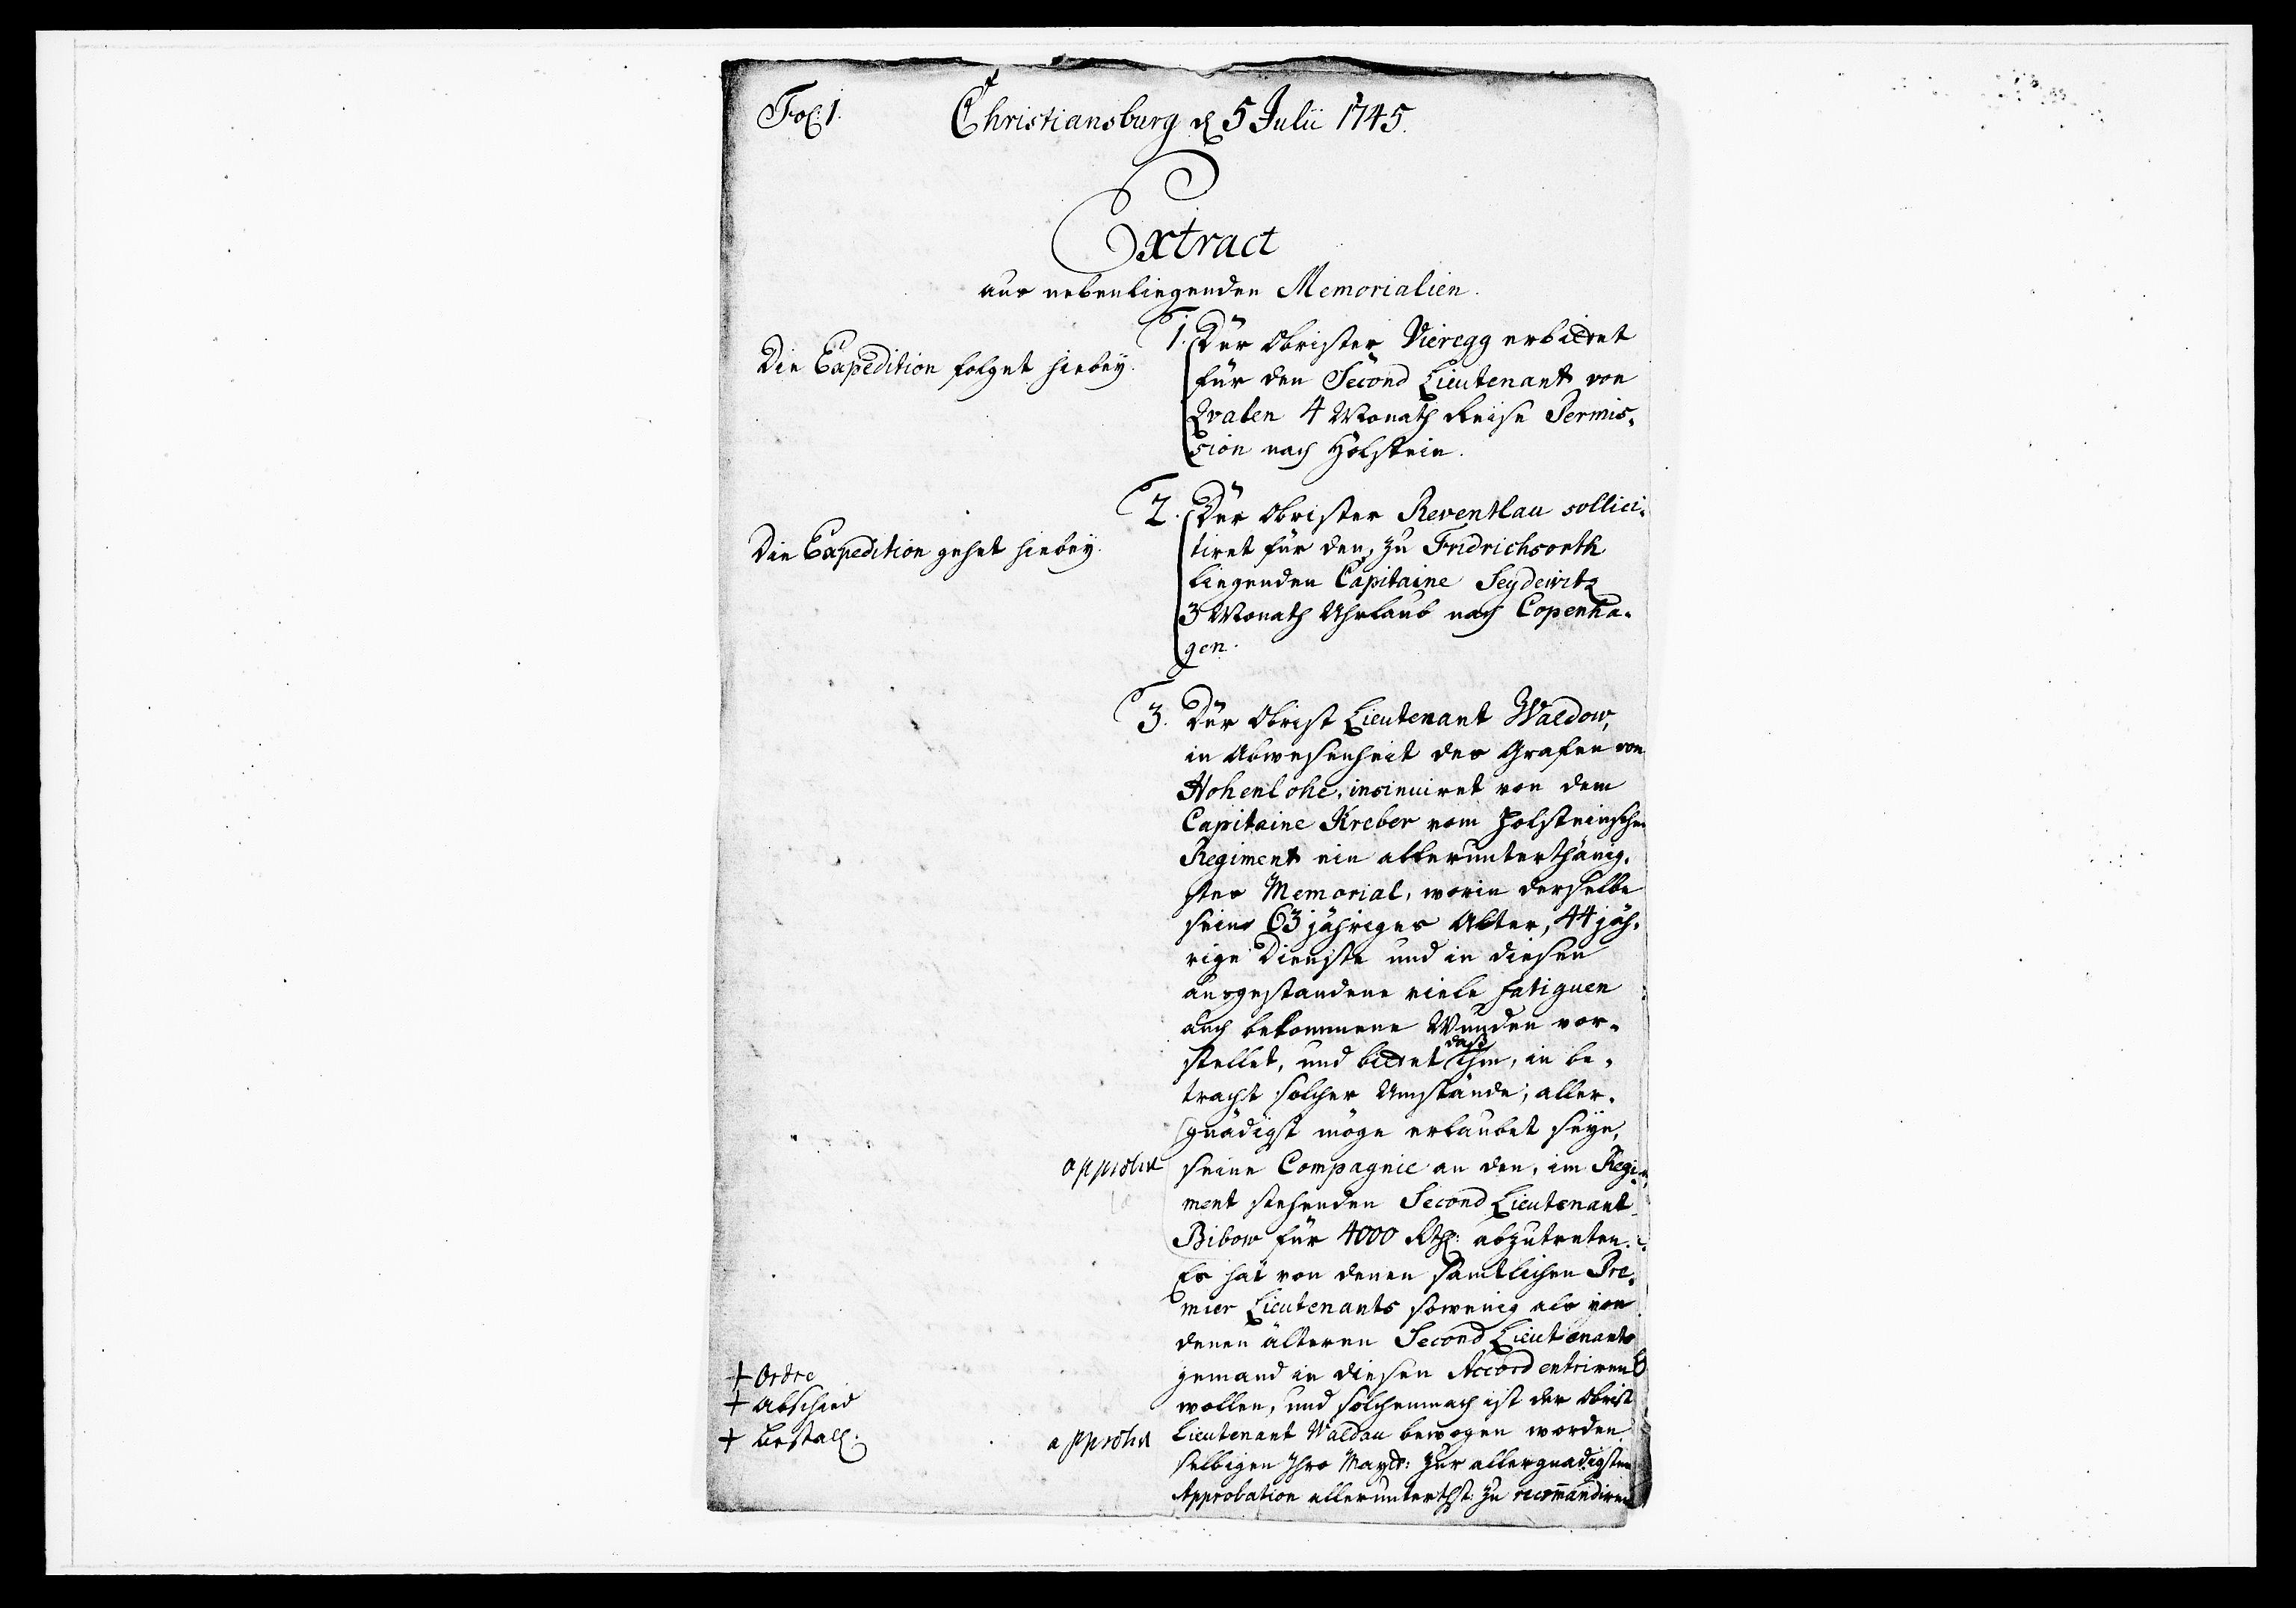 Fol: 1.
Christiansburg d 5 Julii 1745.
Extract
aus nebenliegenden Memorialien.
Die Expedition folget hiebeÿ.
1. Der Obrister Vieregg erbietet
für den Second Lieutenant von
Qvalen 4 Monath Reise Permis-
sion nach Holstein.
Die Expedition gehet hiebeÿ.
2. Der Obrister Reventlau sollici-
tiret für den, zu Fridrichsorth
liegenden Capitaine Seydewitz
3 Monath Uhrlaub nach Copenha-
gen.
3. Der Obrist Lieutenant Waldow,
in Abwesenheit des Grafen von
Hohenlohe, insinuiret von dem
Capitaine Kreber vom Holsteinschen
Regiment ein allerunterthänig-
stes Memorial, worin derselbe
sein 63 jähriges Alter, 44 jäh-
rige Dienste und in diesen
ausgestandene viele fatiguen
auch bekommene Wunden vor-
stellet, und bietet daß ihm, in be-
tracht solcher Umstände, aller-
gnädigst möge erlaubet seÿn,
approbirt
seine Compagnie an den, im Regi-
ment stehenden Second Lieutenant
Bibow für 4000 Rth: abzutreten.
Es hat von denen sämtlichen Pre-
mier Lieutenants sowenig als von
denen älteren Second Lieutenants
jemand in diesen Accord entriren
+ Ordre
+ Abschied
+ Bestall:
wollen, und solchemnach ist der Obrist
approbirt
Lieutenant Waldau bewogen worden
selbigen Ihro Mayt: zur allergnädigsten
Approbation allerunterthst: zu recom̄andiren